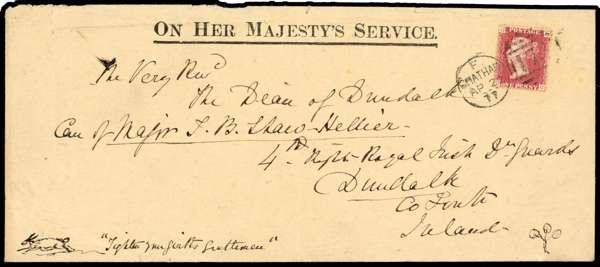 ON HER MAJESTY'S SERVICE.
POSTAGE
ONE PENNY
CHATHAM
AP 2
77
The Very Revd
The Dean of Dundalk
Care of Major T. B. Shaw-Hellier
4th Royal Irish Dn Guards
Dundalk
Co Louth
Ireland
"Tighten your girths Gentlemen"